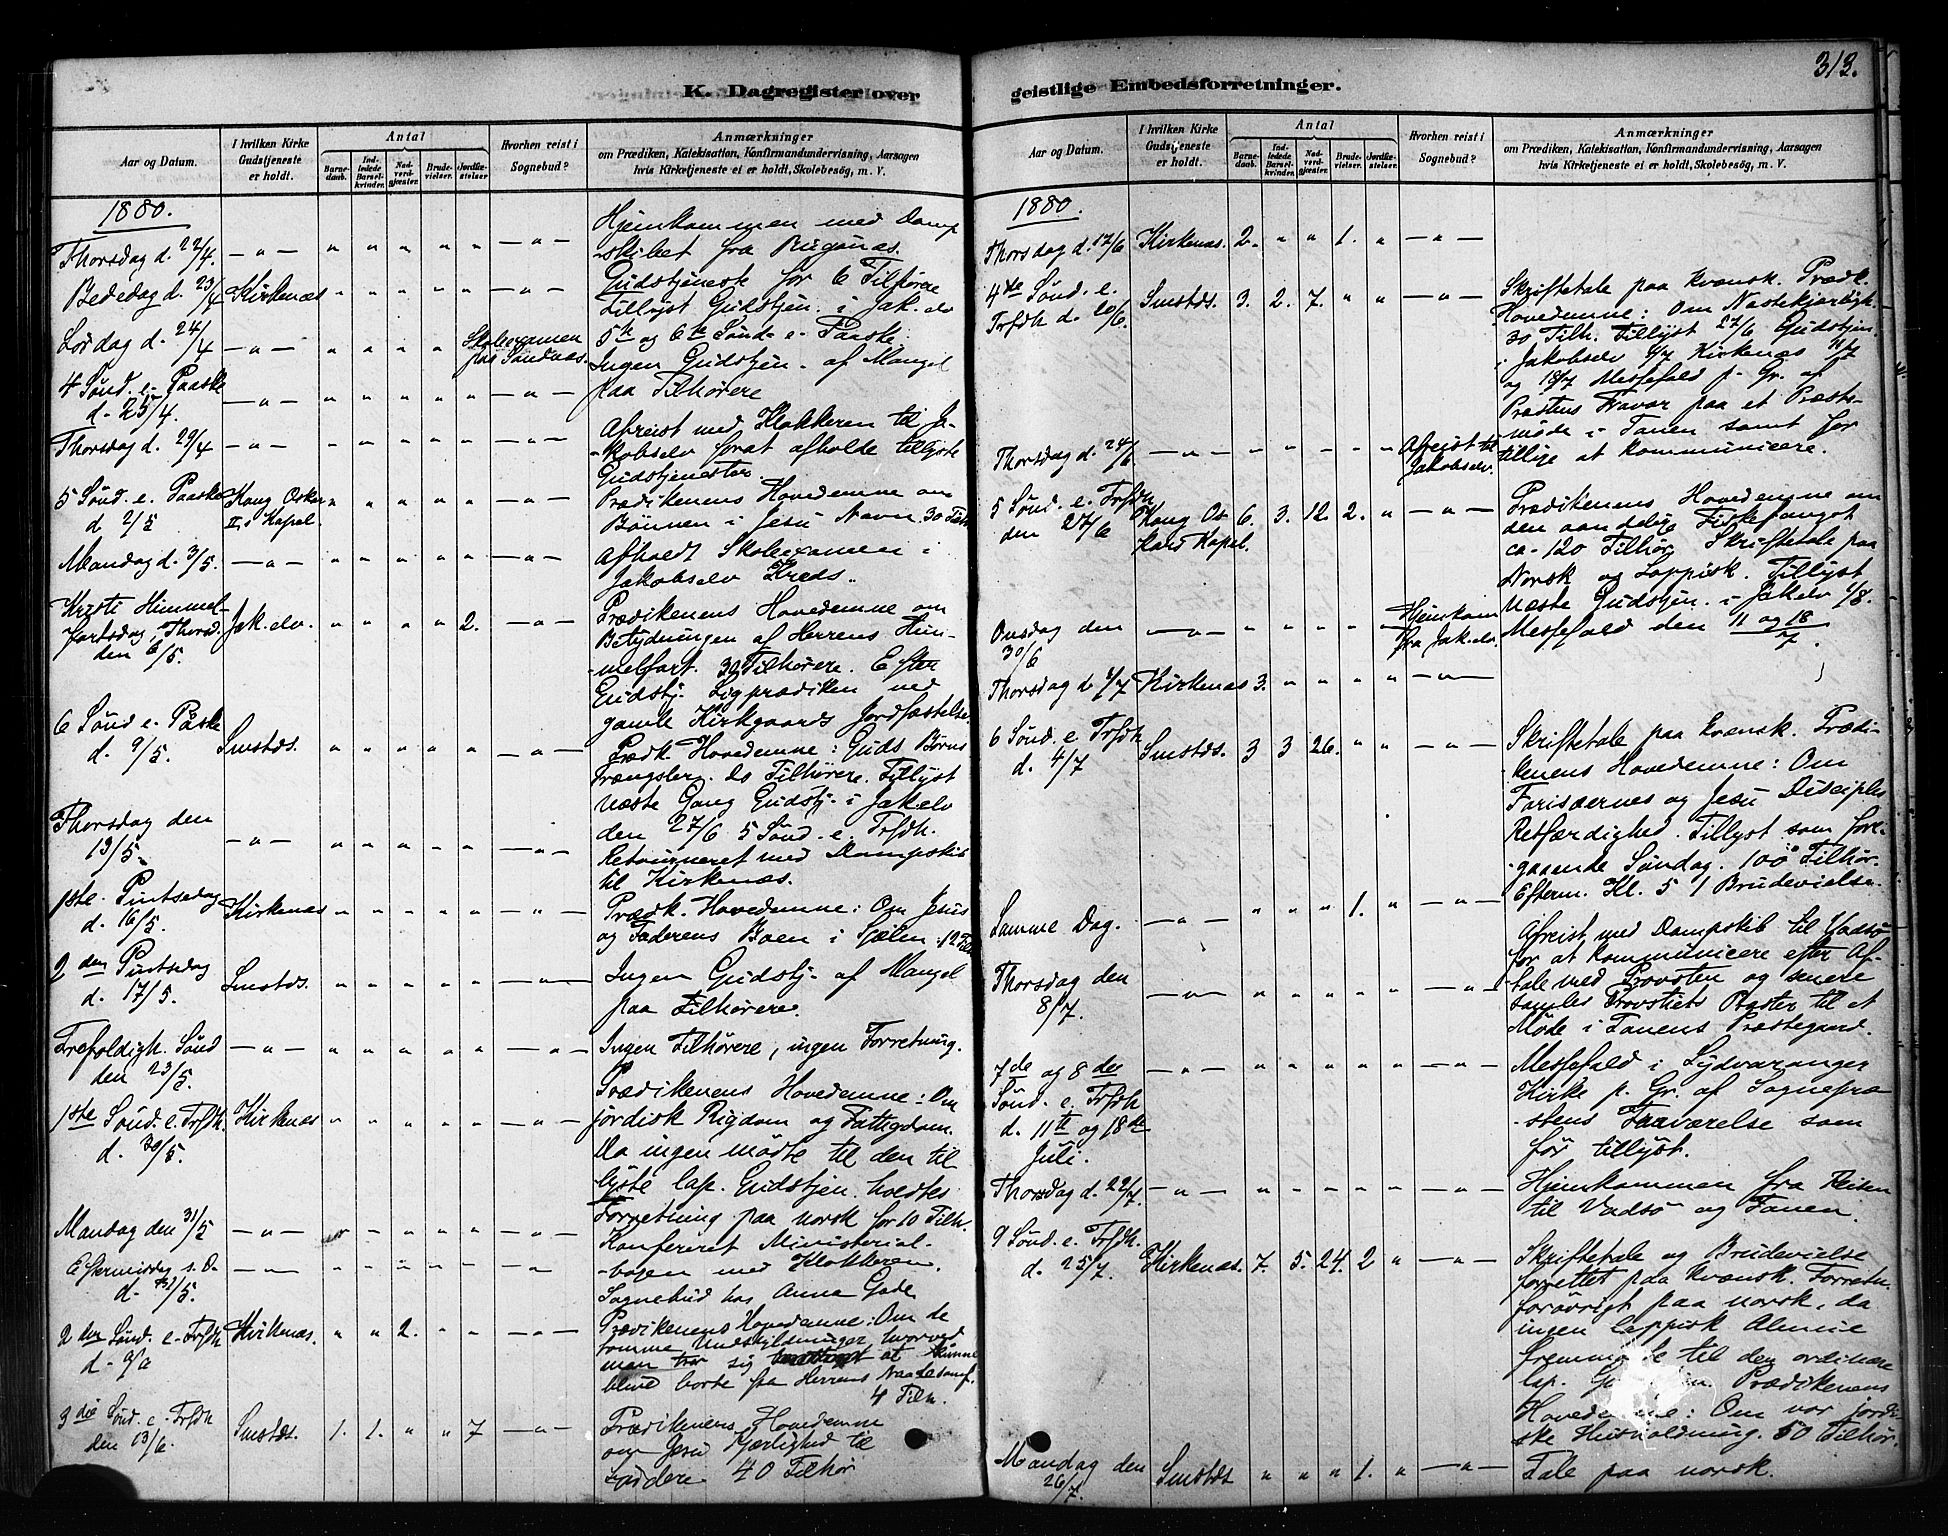 K. Dagregister over
Antal
Aar og Datum.
I hvilken Kirke Gudstjeneste er holdt.
Barnedaab.
Indledede Barselkvinder.
Nadverdgjæster.
Brudevielser.
Jordfæstelser
Hvorhen reist i Sognebud?
Anmærkninger
om Prædiken, Katekisation, Konfirmandundervisning, Aarsagen
hvis Kirketjeneste ei er holdt, Skolebesög, m. V.
1880.
Thorsdag d. 22/4. — " — " " " " " — " — Hjemkommen med Damp
skibet fra Bugønæs.
Bededag d. 23/4 Kirkenæs " " " " " — " — Gudstjeneste for 6 Tilhørere
Tillyst Gudstjen. i Jak.elv
Lørdag d. 24/4 — " — " " " " Skoleexamen
paa Sandnæs.
5te og 6te Sønd. e. Paaske.
Ingen Gudstjen. af Mangel
4 Sønd. e. Paaske
d. 25/4. — " — " " " " " — " — paa Tilhørere
Thorsdag d. 29/4 — " — " " " " " — " — Afreist med Klokkeren til Ja-
kobselv forat afholde tillyste
Gudstjenester
5 Sønd. e. Paaske
d 2/5
Kong Oskar
II's Kapel. " " " " " — " — Prædikenens Hovedemne om
Bønnen i Jesu Navn. 30 Tilh.
Mandag d. 3/5. — " — " " " " " — " — Afholdt Skoleexamen i
Jakobselv Kreds.
Kristi Himmel-
fartsdag, Thorsd.
den 6/5. Jak.elv. " " " " 2. — " — Prædikenens Hovedemne om
Betydningen af Herrens Him-
melfart. 30 Tilhørere. Efter
Gudstj. Ligprædiken ved
gamle Kirkgaards Jordfæstelse.
6 Sønd e. Paaske
d. 9/5. Smstds. " " " " " — " — Prædk. Hovedemne: Guds Børns
Trængsler. 20 Tilhørere. Tillyst
næste Gang Gudstj. i Jakelv
den 27/6 5 Sønd. e. Trfdh.
Thorsdag den
13/5. — " — " " " " " — " — Retourneret med Dampskib
til Kirkenæs.
1ste Pintsedag
d. 16/5. Kirkenæs " " " " " — " — Prædk. Hovedemne: Om Jesus
og Faderens Boen i Sjælen. 12 Tilh.
2den Pintsedag
d. 17/5. Smstds. " " " " " — " — Ingen Gudstj. af Mangel
paa Tilhørere.
Trefoldigh. Sønd
den 23/5. — " — " " " " " — " — Ingen Tilhørere, ingen Forretning.
1ste Sønd. e. Trfdh.
d. 30/5. Kirkenæs " " " " " — " — Prædikenens Hovedemne: Om
jordisk Rigdom og Fattigdom.
Da ingen mødte til den til
lyste lap. Gudstjen. holdtes
Forretning paa norsk for 10 Tilh.
Mandag den 31/5 — " — " " " " " — " — Konfereret Ministerial-
bogen med Klokkeren.
Eftermiddag s. D.
d. 31/5. — " — " " " " " — " — Sognebud hos Anna Gade
2den Sønd. e. Trfdh
d. 6/6 Kirkenæs. " " 2. " " — " — Prædikenens Hovedemne: Om de
tomme Undskyldninger hvorved
man tror sig at kunne
blive borte fra Herrens Naadesamf.
4 Tilh.
3die Sønd. e. Trfdh
den 13/6. Smstds. 1. 1. " " 7 — " — Prædikenens Hovedemne
om Jesu Kjærlighed til
Syndere 40 Tilhør
313.
geistlige Embedsforretninger.
Antal
Aar og Datum.
I hvilken Kirke Gudstjeneste er holdt.
Barnedaab.
Indledede Barselkvinder.
Nadverdgjæster.
Brudevielser.
Jordfæstelser
Hvorhen reist i Sognebud?
Anmærkninger
om Prædiken, Katekisation, Konfirmandundervisning, Aarsagen
hvis Kirketjeneste ei er holdt, Skolebesög, m. V.
1880.
Thorsdag d. 17/6 Kirkenæs. 2. " " 1. " — " —
4de Sønd. e.
Trfdh d. 20/6. Smstds. 3. 2. 7. " " — " — Skriftetale paa kvensk. Prædk.
Hovedemne: Om Næstekjærligh.
30 Tilh. Tillyst 27/6 Gudstjen.
i Jakobselv 4/7 Kirkenæs 11/7
og 18/7 Messefald p. Gr. af
Præstens Fravær paa et Præste-
møde i Tanen samt for
tillige at kommunicere.
Thorsdag d. 24/6 — " — " " " " " Afreist til
Jakobselv.
5 Sønd. e. Trfdh
den 27/6 Kong Os-
kars Kapel. 6. 3. 12. 2. " — " — Prædikenens Hovedemne om
den aandelige Fiskefangst
ca. 120 Tilhør. Skriftetale paa
Norsk og Lappisk. Tillyst
næste Gudstjen. i Jakelv 1/8.
Messefald den 11 og 18/7.
Onsdag den
30/6 — " — " " " " " Hjemkom
fra Jak.elv.
Thorsdag d. 1/7 Kirkenæs 3. " " " " — " —
6 Sønd. e. Trfdh
d. 4/7 Smstds. 3 3 26. " " — " — Skriftetale paa kvensk. Prædi-
kenens Hovedemne: Om
Farisæernes og Jesu Disciples
Retfærdighed. Tillyst som fore-
gaaende Søndag. 100 Tilhør.
Samme Dag. — " — " " " 1. " — " — Efterm. Kl. 5 1 Brudevielse.
Thorsdag den
8/7. — " — " " " " " — " — Afreist med Dampskib til Vadsø
for at kommunicere efter Af-
tale med Provsten og senere
samles Provstiets Præster til et
Møde i Tanens Præstegaard.
7de og 8de
Sønd. e. Trfdh
d. 11te og 18de
Juli. — " — " " " " " — " — Messefald i Sydvaranger
Kirke p. Gr. af Sognepræ
stens Fraværelse som
før tillyst.
Thorsdag d. 22/7. — " — " " " " " — " — Hjemkommen fra Reisen
til Vadsø og Tanen.
9 Sønd. e. Trfdh.
d. 25/7. Kirkenæs. 7. 5. 24. 2 " — " — Skriftetale og Brudevielse
forrettet paa kvænsk. Forretn.
forøvrigt paa norsk, da
ingen lappisk Almue
fremmødte til den ordinære
lap. Prædikenens
Hovedemne: Om vor jordi
ske Husholdning. 50 Tilhør.
Mandag den
26/7. Smstds " " " 1. " — " — Tale paa norsk.